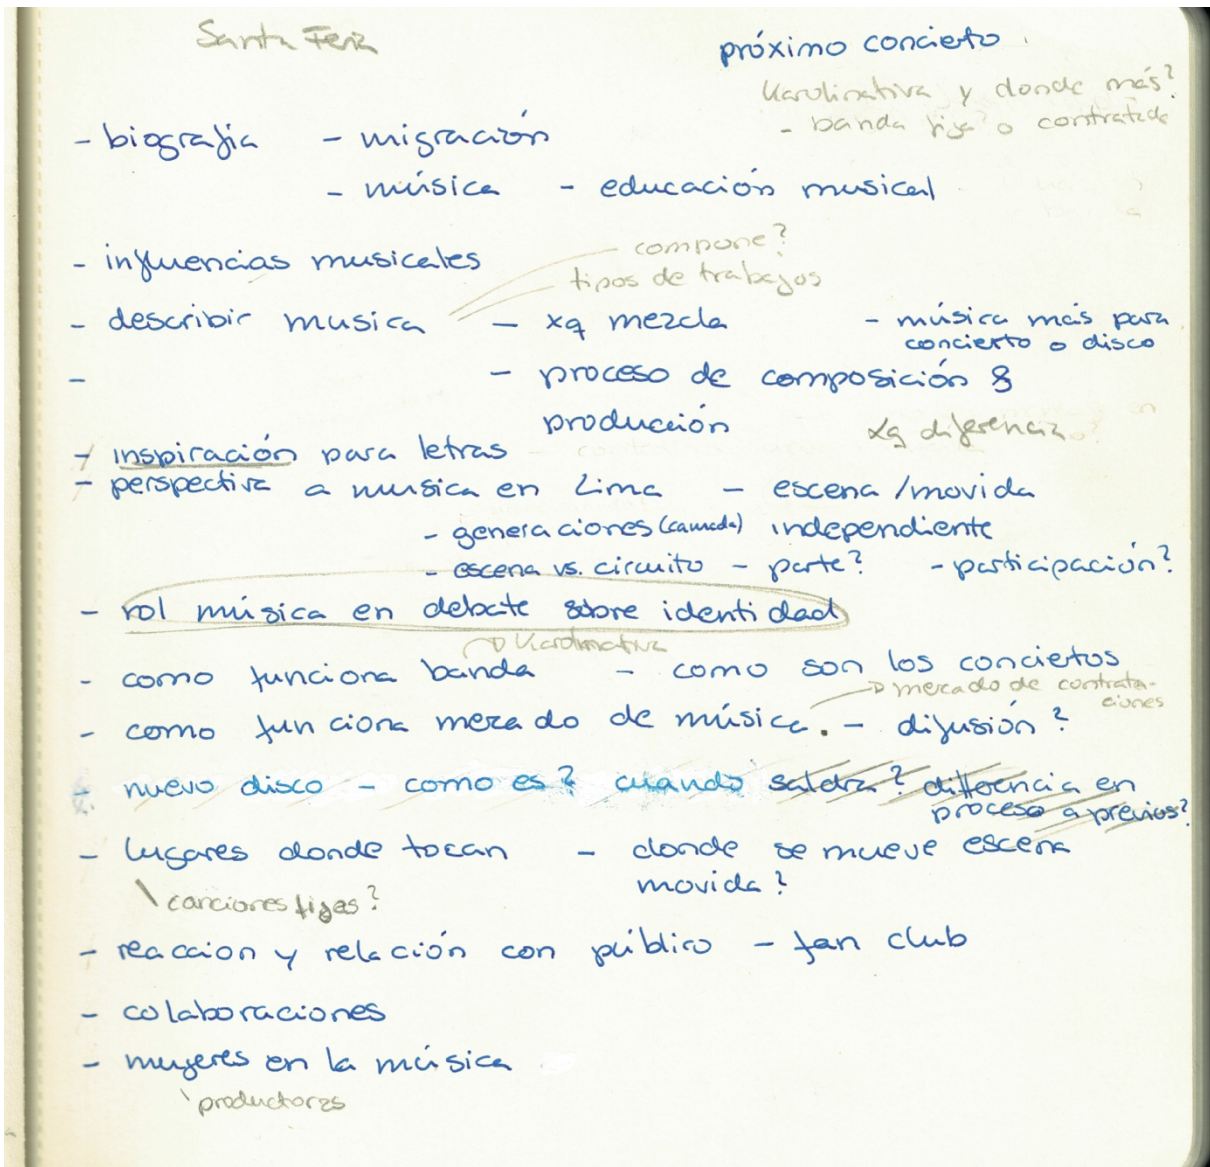 Santa Feria
próximo concierto
Kardinativa y donde más?
- banda fija o contratada
- biografia - migración
- música - educación musical
- influencias musicales
compone?
tipos de trabajos
- describir musica - xq mezcla - música más para
concierto o disco
-
- proceso de composición &
producción
xq diferencia
- inspiración para letras
- perspectiva a musica en Lima - escena / movida
- generaciones (camada) independiente
- escena vs. circuito - parte? - participación?
- rol música en debate sobre identidad
- como funciona banda - como son los conciertos
mercado de contrata-
ciones
- como funciona mercado de música. - difusión?
nuevo disco - como es? cuando saldra? differencia en
proceso a previos?
- lugares donde tocan - donde se mueve escena
movida?
canciones fijas?
- reaccion y relación con público - fan club
- colaboraciones
- mujeres en la música
productoras